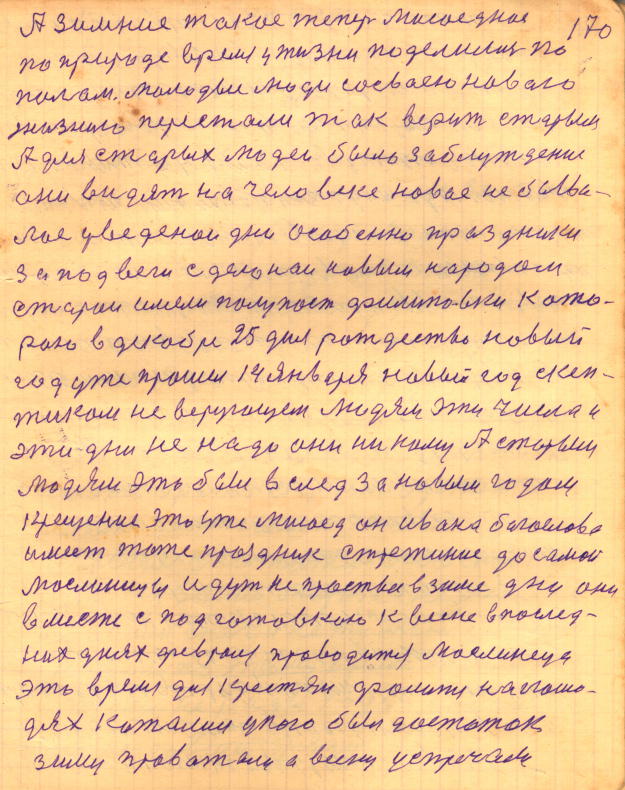 170
А зимние такое тепер мясоедное
по природе время у жизни поделилис по
полам. молодые люди сосваею новаго
жизнию перестали так верит старым
А для старых людеи было заблуждение
они видят на человеке новое не быва-
лое уведеной дни особенно праздники
заповеди сделонаи новым народом
старои имели полупост филиповки кото-
рою в декабре 25 дня рождество новый
год уже прошел 14 января новый год скеп-
тиком не верующем людям эти числа и
эти дни не надо они ни кому А старым
людям это был в след за новым годом
крещение это уже мясоед он ивана багослова
имеет тоже праздник стретиние до самой
маслиницы идут не простые в зиме дни они
вместе с подготовкою к весне в послед-
них днях февраля проводится маслинеца
это время для крестян на лоша-
дях каталис у кого был достаток
зиму проважали а весну устречали